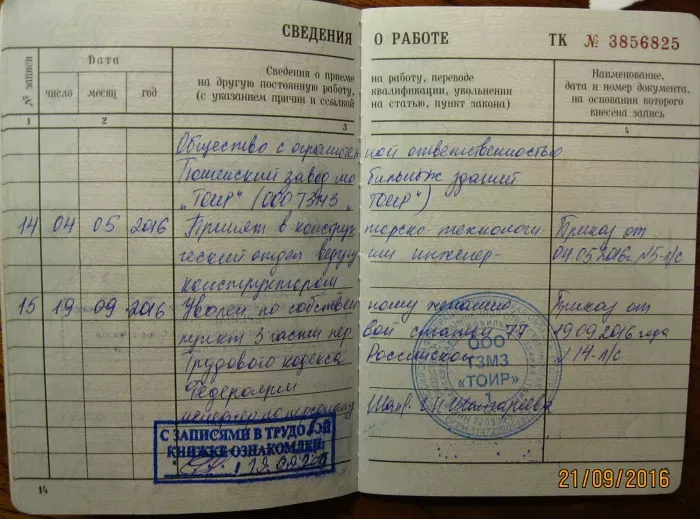 СВЕДЕНИЯ О РАБОТЕ ТК № 3856825
№ записи Дата Сведения о приеме на работу, переводе Наименование,
число месяц год на другую постоянную работу, квалификации, увольнении дата и номер документа,
(с указанием причин и ссылкой на статью, пункт закона) на основании которого
внесена запись
1 2 3 4
Общество с ограничен ной ответственностью
завод мо бильных зданий
„ТОИР" (ООО ТЗМЗ „ТОИР")
14 04 05 2016 Принят в конструк торско-технологи Приказ от
ческий отдел ведущ им инженер- 04.05.2016г. №5-л/с
конструктором
15 19 09 2016 Уволен по собствен ному желанию Приказ от
пункт 3 части пер вой статьи 77 19.09.2016 года
Трудового кодекса Российской №14-л/с
Федерации
менеджер по персоналу
ООО
ТЗМЗ
«ТОИР»
С ЗАПИСЯМИ В ТРУДОВОЙ
КНИЖКЕ ОЗНАКОМЛЕН:
14
21/09/2016